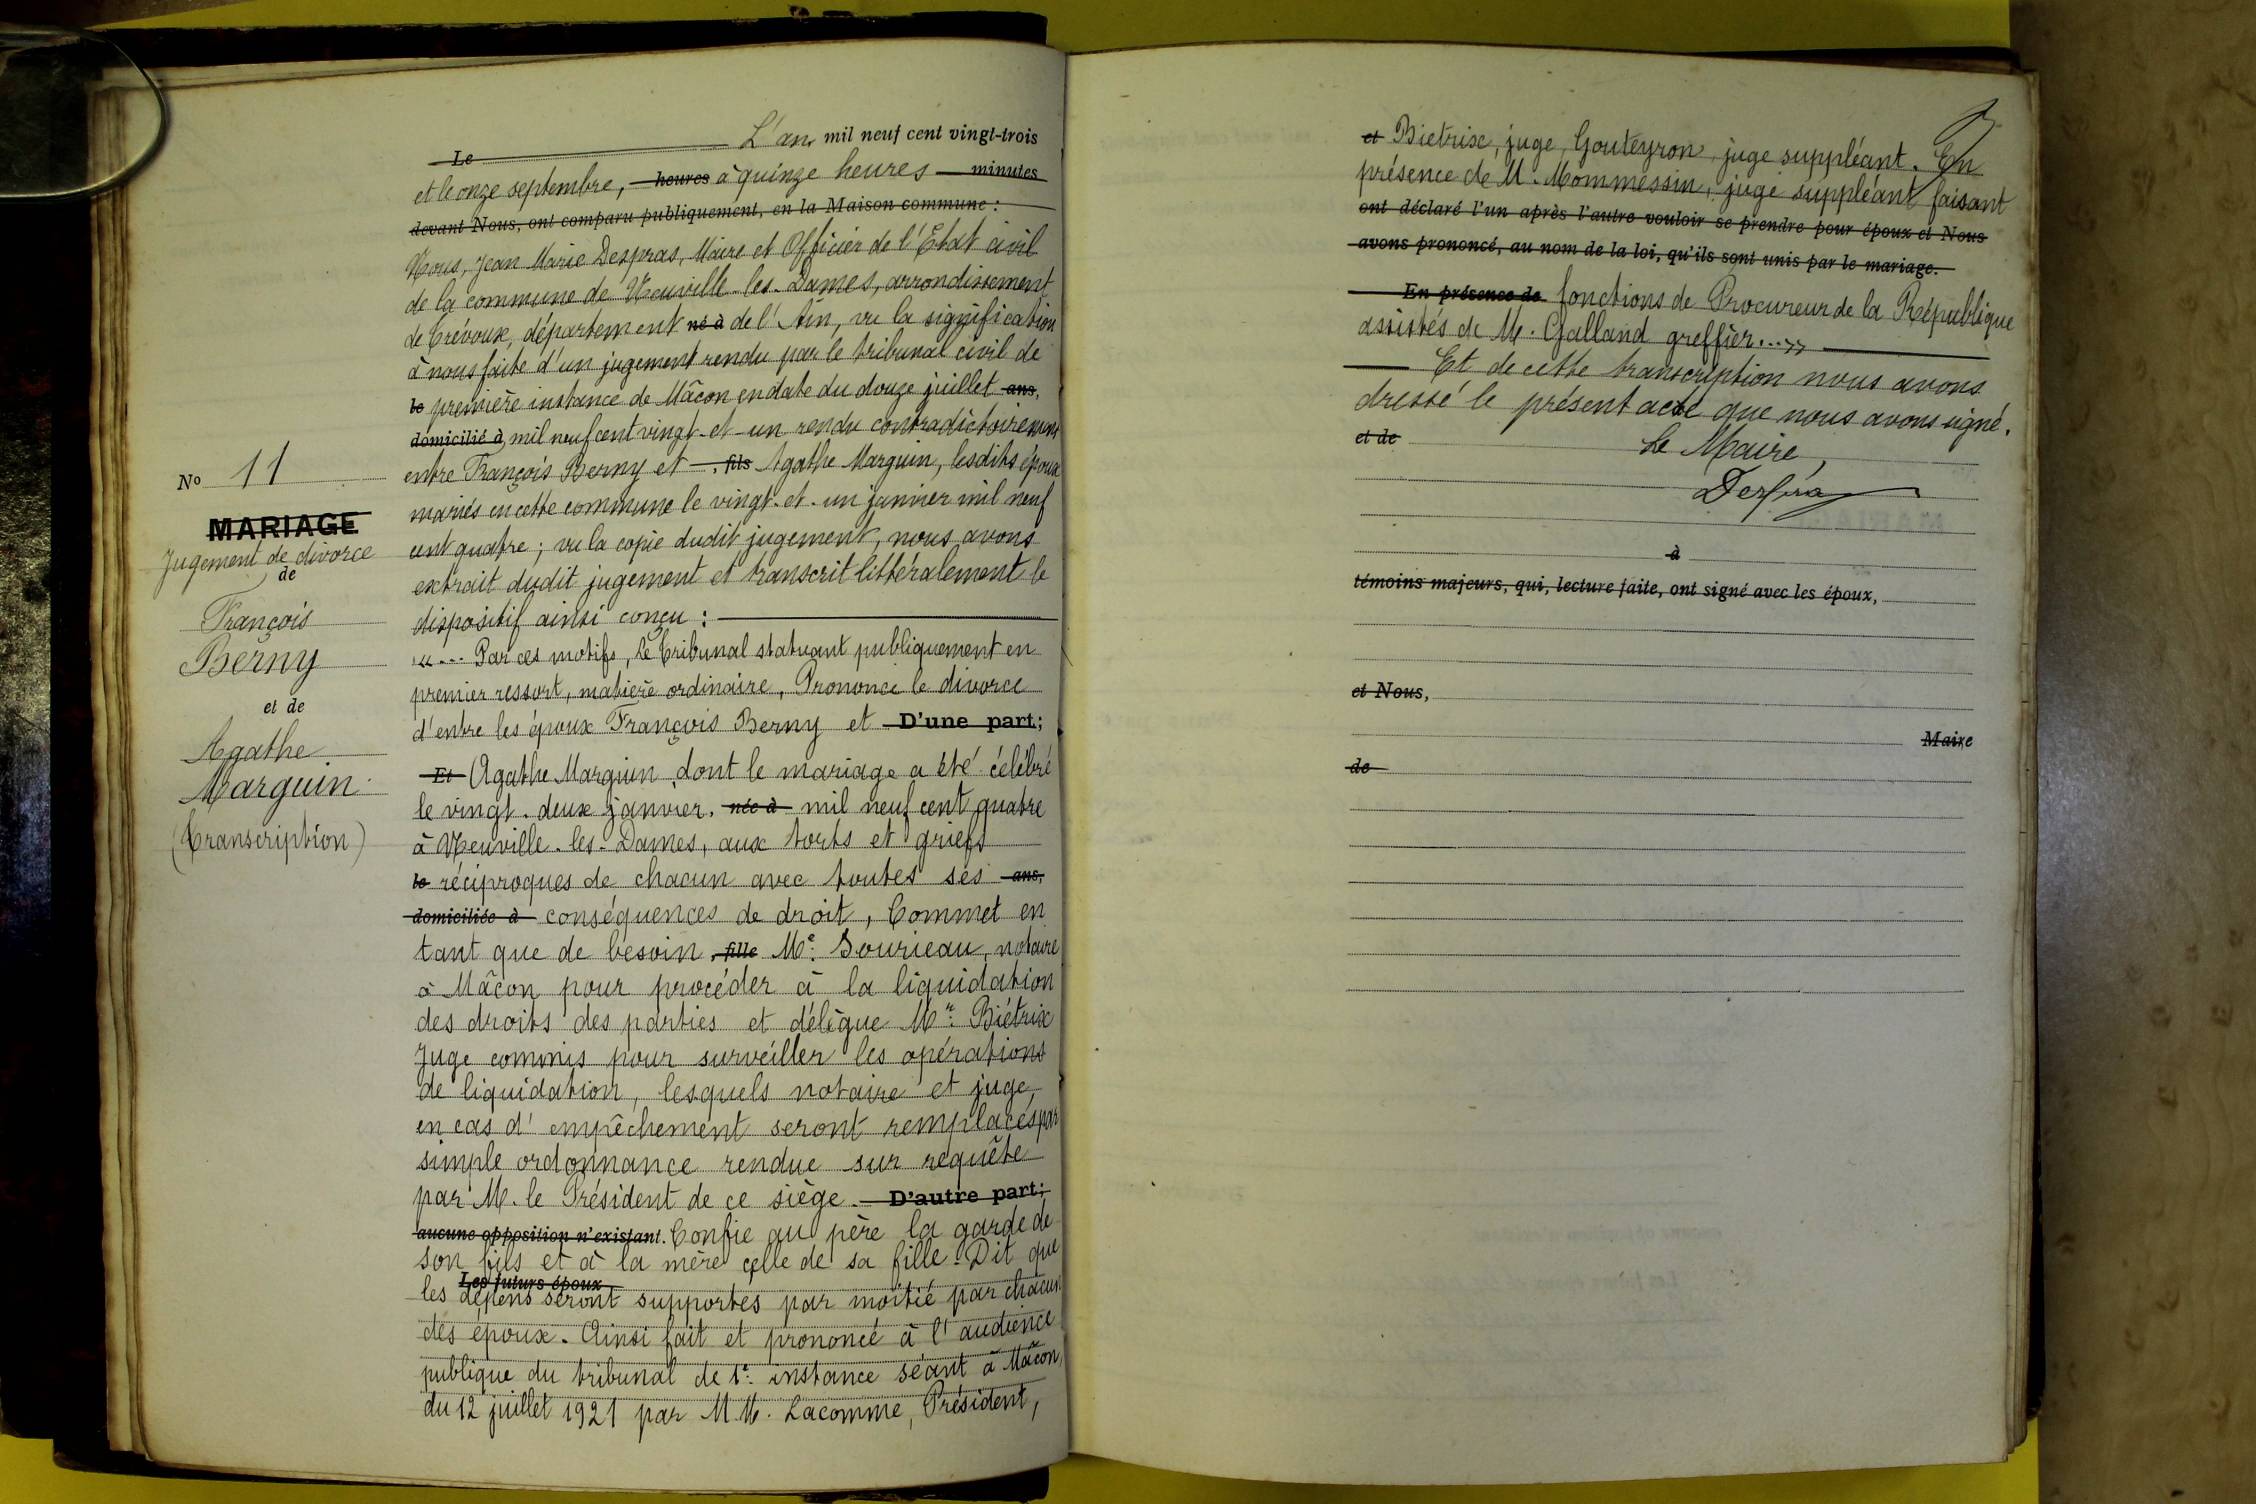 Le L'an mil neuf cent vingt-trois
et le onze septembre, heures à quinze heures minutes
devant Nous, ont comparu publiquement, en la Maison commune :
Nous, Jean Marie Despras, Maire et Officier de l'Etat civil
de la commune de Neuville-les-Dames, arrondissement
de Trévoux, département né à de l'Ain, vu la signification
à nous faite d'un jugement rendu par le tribunal civil de
le première instance de Mâcon en date du douze juillet ans,
domicilié à mil neuf cent vingt-et-un rendu contradictoirement
entre François Berny et , fils Agathe Marguin, lesdits époux
mariés en cette commune le vingt-et-un janvier mil neuf
cent quatre ; vu la copie dudit jugement, nous avons
extrait dudit jugement et transcrit littéralement le
dispositif ainsi conçu :
«... Par ces motifs, Le Tribunal statuant publiquement en
premier ressort, matière ordinaire, Prononce le divorce
d'entre les époux François Berny et D'une part;
Et Agathe Marguin dont le mariage a été célébré
le vingt-deux janvier, née à mil neuf cent quatre
à Neuville-les-Dames, aux torts et griefs
le réciproques de chacun avec toutes ses ans,
domiciliée à conséquences de droit, Commet en
tant que de besoin , fille Me. Sourieau, notaire
à Mâcon pour procéder à la liquidation
des droits des parties et délègue Mr. Biétrix
Juge commis pour surveiller les opérations
de liquidation, lesquels notaire et juge,
en cas d'empêchement seront remplacés par
simple ordonnance rendue sur requête
par M. le Président de ce siège. D'autre part;
aucune opposition n'existant. Confie au père la garde de
son fils et à la mère celle de sa fille. Dit que
Les futurs époux
les dépens seront supportés par moitié par chacun
des époux. Ainsi fait et prononcé à l'audience
publique du tribunal de 1e. instance séant à Mâcon,
du 12 juillet 1921 par M.M. Lacomme, Président,
No 11
MARIAGE
Jugement de divorce
de
François
Berny
et de
Agathe
Marguin
(Transcription)
et Bietrix, juge, Gouteyron, juge suppléant. En
présence de M. Mommessin, juge suppléant faisant
ont déclaré l'un après l'autre vouloir se prendre pour époux et Nous
avons prononcé, au nom de la loi, qu'ils sont unis par le mariage.
En présence de fonctions de Procureur de la République
assistés de M. Galland greffier...»
Et de cette transcription nous avons
dressé le présent acte que nous avons signé.
et de Le Maire,
Despras
à
témoins majeurs, qui, lecture faite, ont signé avec les époux,
et Nous,
Maire
de